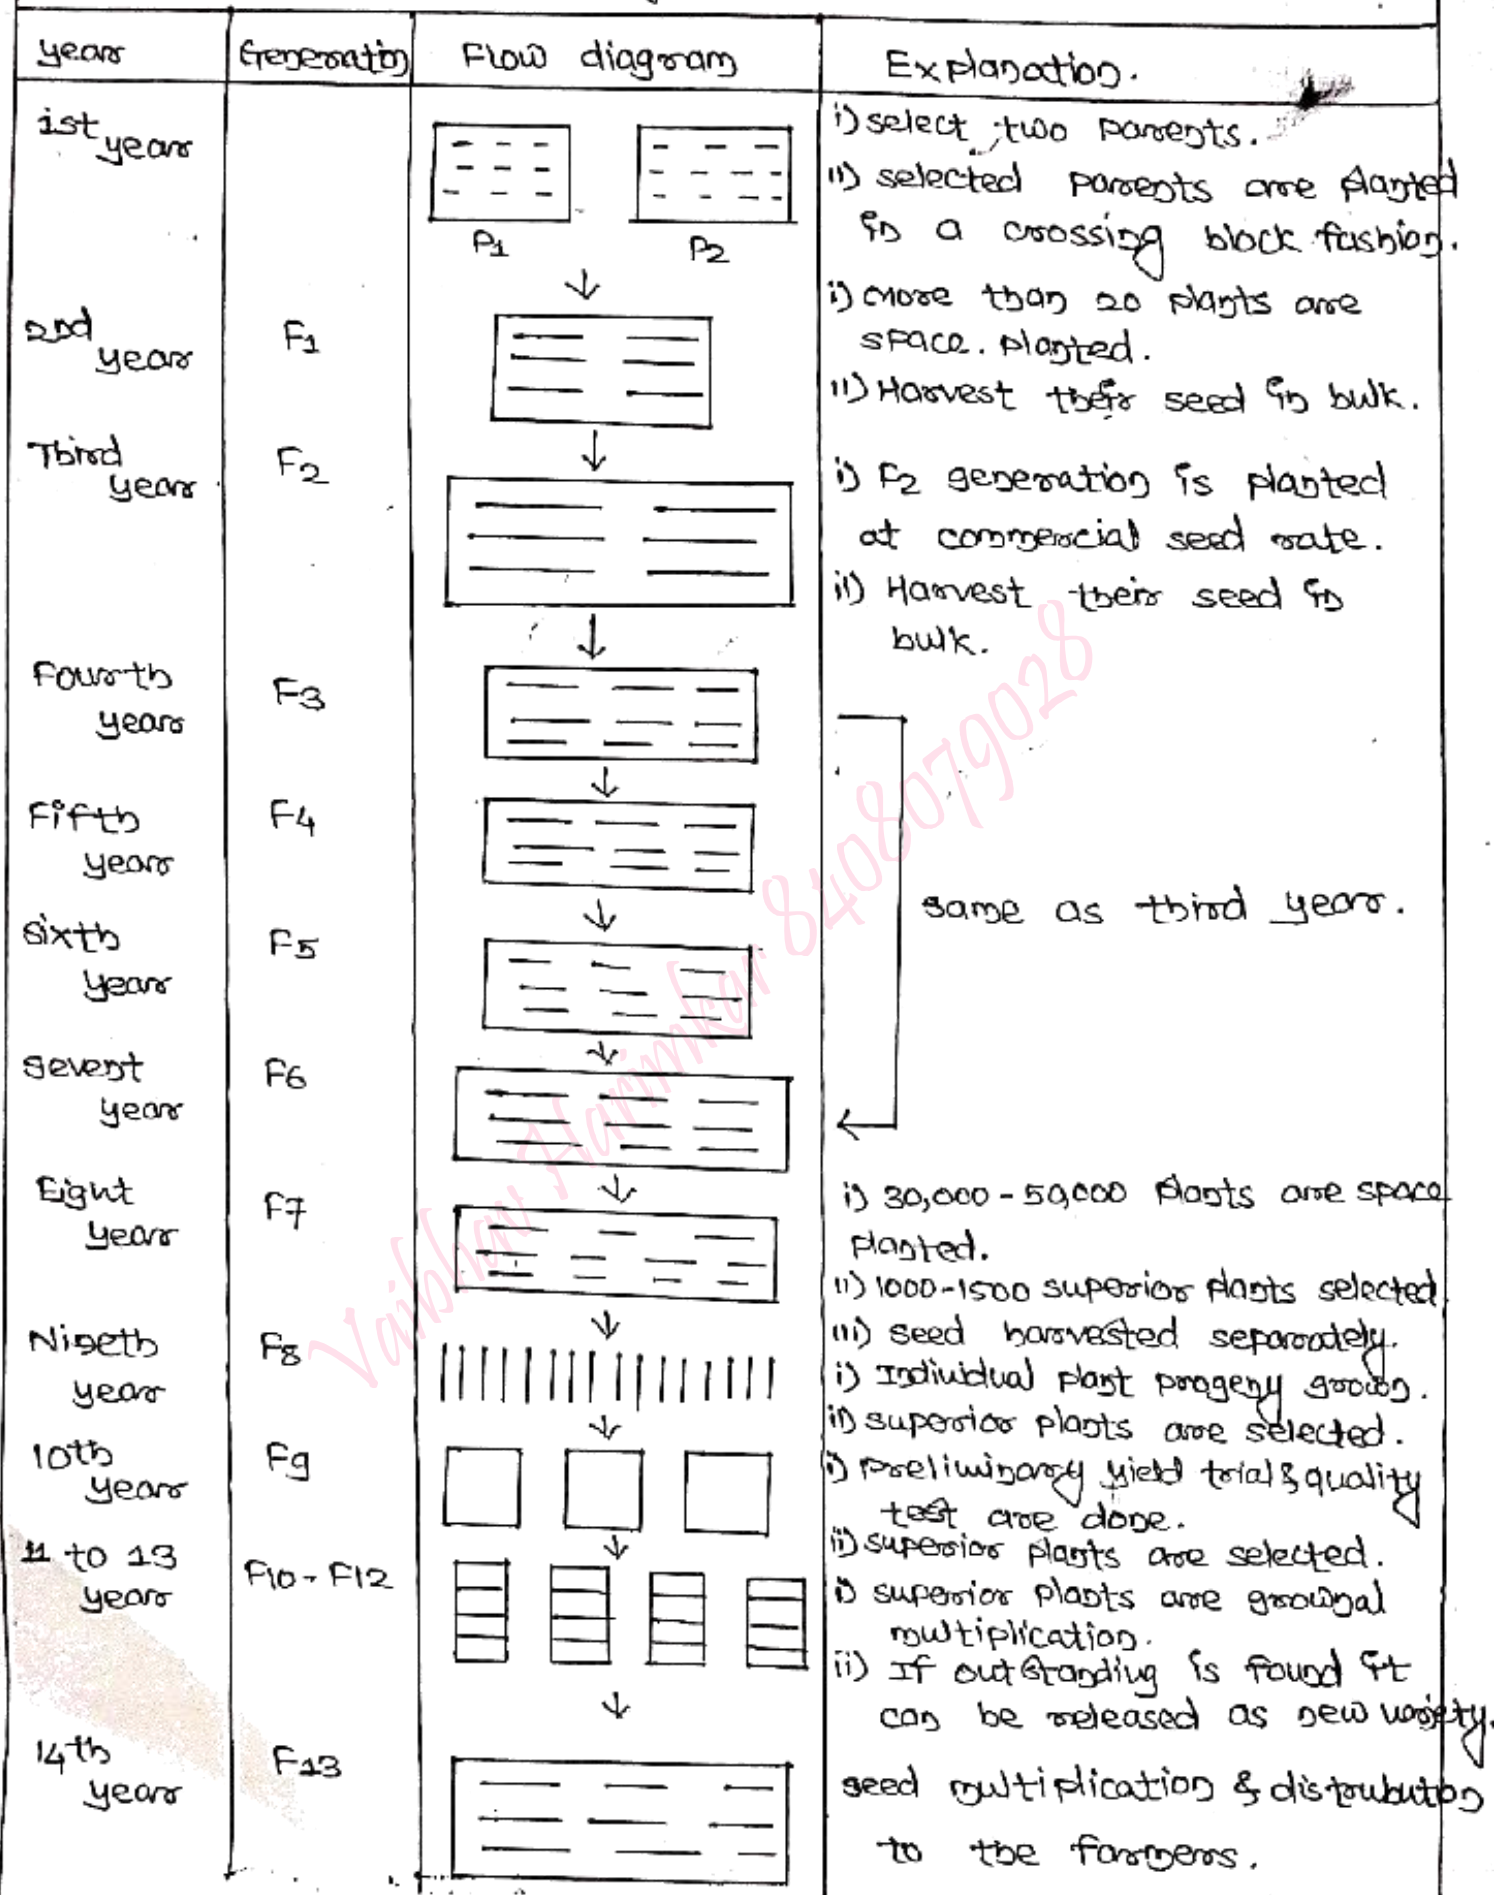 year Generation Flow diagram Explanation.
1st year
P1 P2
i) select two parents.
ii) selected parents are planted
in a crossing block fashion.
2nd year F1
i) more than 20 plants are
space. planted.
ii) Harvest their seed in bulk.
Third year F2
i) F2 generation is planted
at commercial seed rate.
ii) Harvest their seed in
bulk.
Fourth year F3
Fifth year F4
Sixth year F5
Sevent year F6
same as third year.
Eight year F7
i) 30,000-50,000 plants are space
planted.
ii) 1000-1500 superior plants selected
iii) seed harvested separately.
Nineth year F8
i) Individual plant progeny grown.
ii) superior plants are selected.
10th year F9
i) Preliminary yield trial & quality
test are done.
ii) superior plants are selected.
11 to 13 year F10 - F12
i) superior plants are
multiplication.
ii) If outstanding is found it
can be released as new variety.
14th year F13
seed multiplication & distrubution
to the farmers.
Vaibhav Harimkar 8408079028